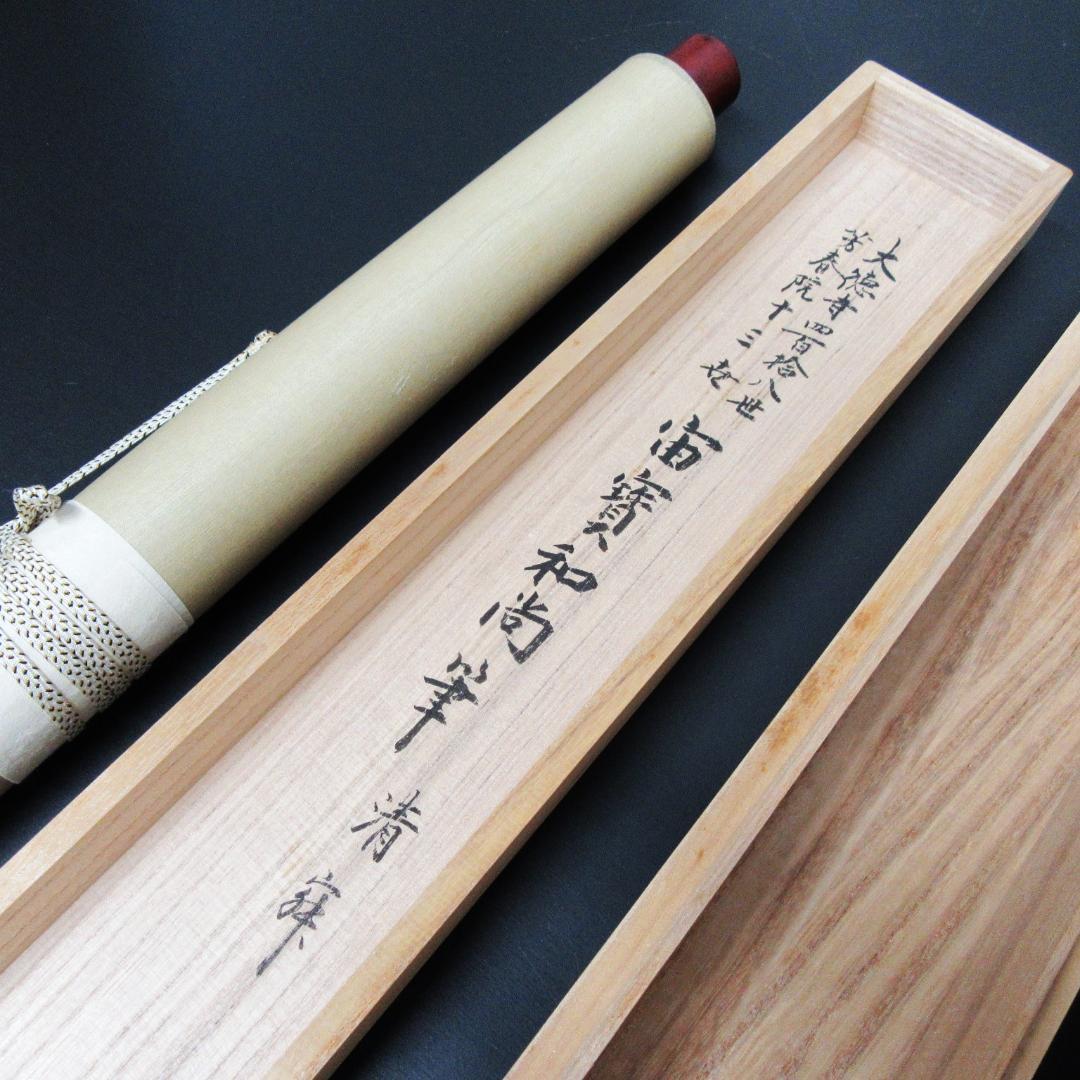 大徳寺四百拾八世
芳春院十三世
宙寶和尚筆
清寂